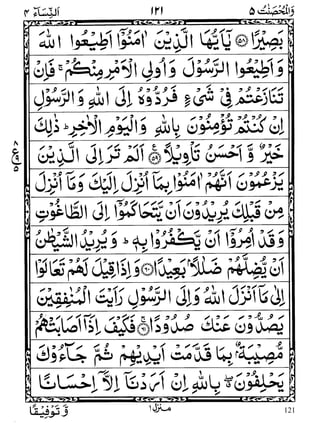 وَالْمُحْصَنٰتُ ٥ ١٢١ اَلنِّسَآء ٤
بَصِيْرًا ۝٥٨ يٰٓاَيُّهَا الَّذِيْنَ اٰمَنُوْٓا اَطِيْعُوا اللّٰهَ
وَاَطِيْعُوا الرَّسُوْلَ وَاُولِي الْاَمْرِ مِنْكُمْ ۚ فَاِنْ
تَنَازَعْتُمْ فِيْ شَيْءٍ فَرُدُّوْهُ اِلَى اللّٰهِ وَالرَّسُوْلِ
اِنْ كُنْتُمْ تُؤْمِنُوْنَ بِاللّٰهِ وَالْيَوْمِ الْاٰخِرِ ؕ ذٰلِكَ
خَيْرٌ وَّاَحْسَنُ تَاْوِيْلًا ۝٥٩ اَلَمْ تَرَ اِلَى الَّذِيْنَ
يَزْعُمُوْنَ اَنَّهُمْ اٰمَنُوْا بِمَآ اُنْزِلَ اِلَيْكَ وَمَآ اُنْزِلَ
مِنْ قَبْلِكَ يُرِيْدُوْنَ اَنْ يَّتَحَاكَمُوْٓا اِلَى الطَّاغُوْتِ
وَقَدْ اُمِرُوْٓا اَنْ يَّكْفُرُوْا بِهٖ ؕ وَيُرِيْدُ الشَّيْطٰنُ
اَنْ يُّضِلَّهُمْ ضَلٰلًۢا بَعِيْدًا ۝٦٠ وَاِذَا قِيْلَ لَهُمْ تَعَالَوْا
اِلٰى مَآ اَنْزَلَ اللّٰهُ وَاِلَى الرَّسُوْلِ رَاَيْتَ الْمُنٰفِقِيْنَ
يَصُدُّوْنَ عَنْكَ صُدُوْدًا ۝٦١ فَكَيْفَ اِذَآ اَصَابَتْهُمْ
مُّصِيْبَةٌۢ بِمَا قَدَّمَتْ اَيْدِيْهِمْ ثُمَّ جَآءُوْكَ
يَحْلِفُوْنَ ۖ بِاللّٰهِ اِنْ اَرَدْنَآ اِلَّآ اِحْسَانًا
وَّتَوْفِيْقًا منزل ١ 121